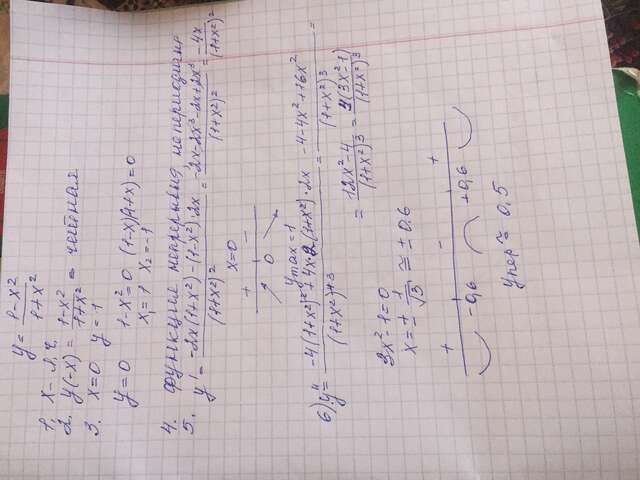 y = (1-x²)/(1+x²)
1. x - л.ч.
2. y(-x) = (1-x²)/(1+x²) = чётная
3. x=0 y=1
y=0 1-x²=0 (1-x)(1+x)=0
x₁=1 x₂=-1
4. функция непрерывна непериодична
5. y' = (-2x(1+x²)-(1-x²)·2x)/(1+x²)² = (-2x-2x³-2x+2x³)/(1+x²)² = -4x/(1+x²)²
x=0
+ 0 -
y max=1
6) y'' = (-4(1+x²)²+4x·2(1+x²)·2x)/(1+x²)⁴³ = (-4-4x²+16x²)/(1+x²)³ =
= (12x²-4)/(1+x²)³ = 4(3x²-1)/(1+x²)³
3x²-1=0
x=± 1/√3 ≅ ±0.6
+ -0,6 - +0,6 +
y пер ≈ 0,5